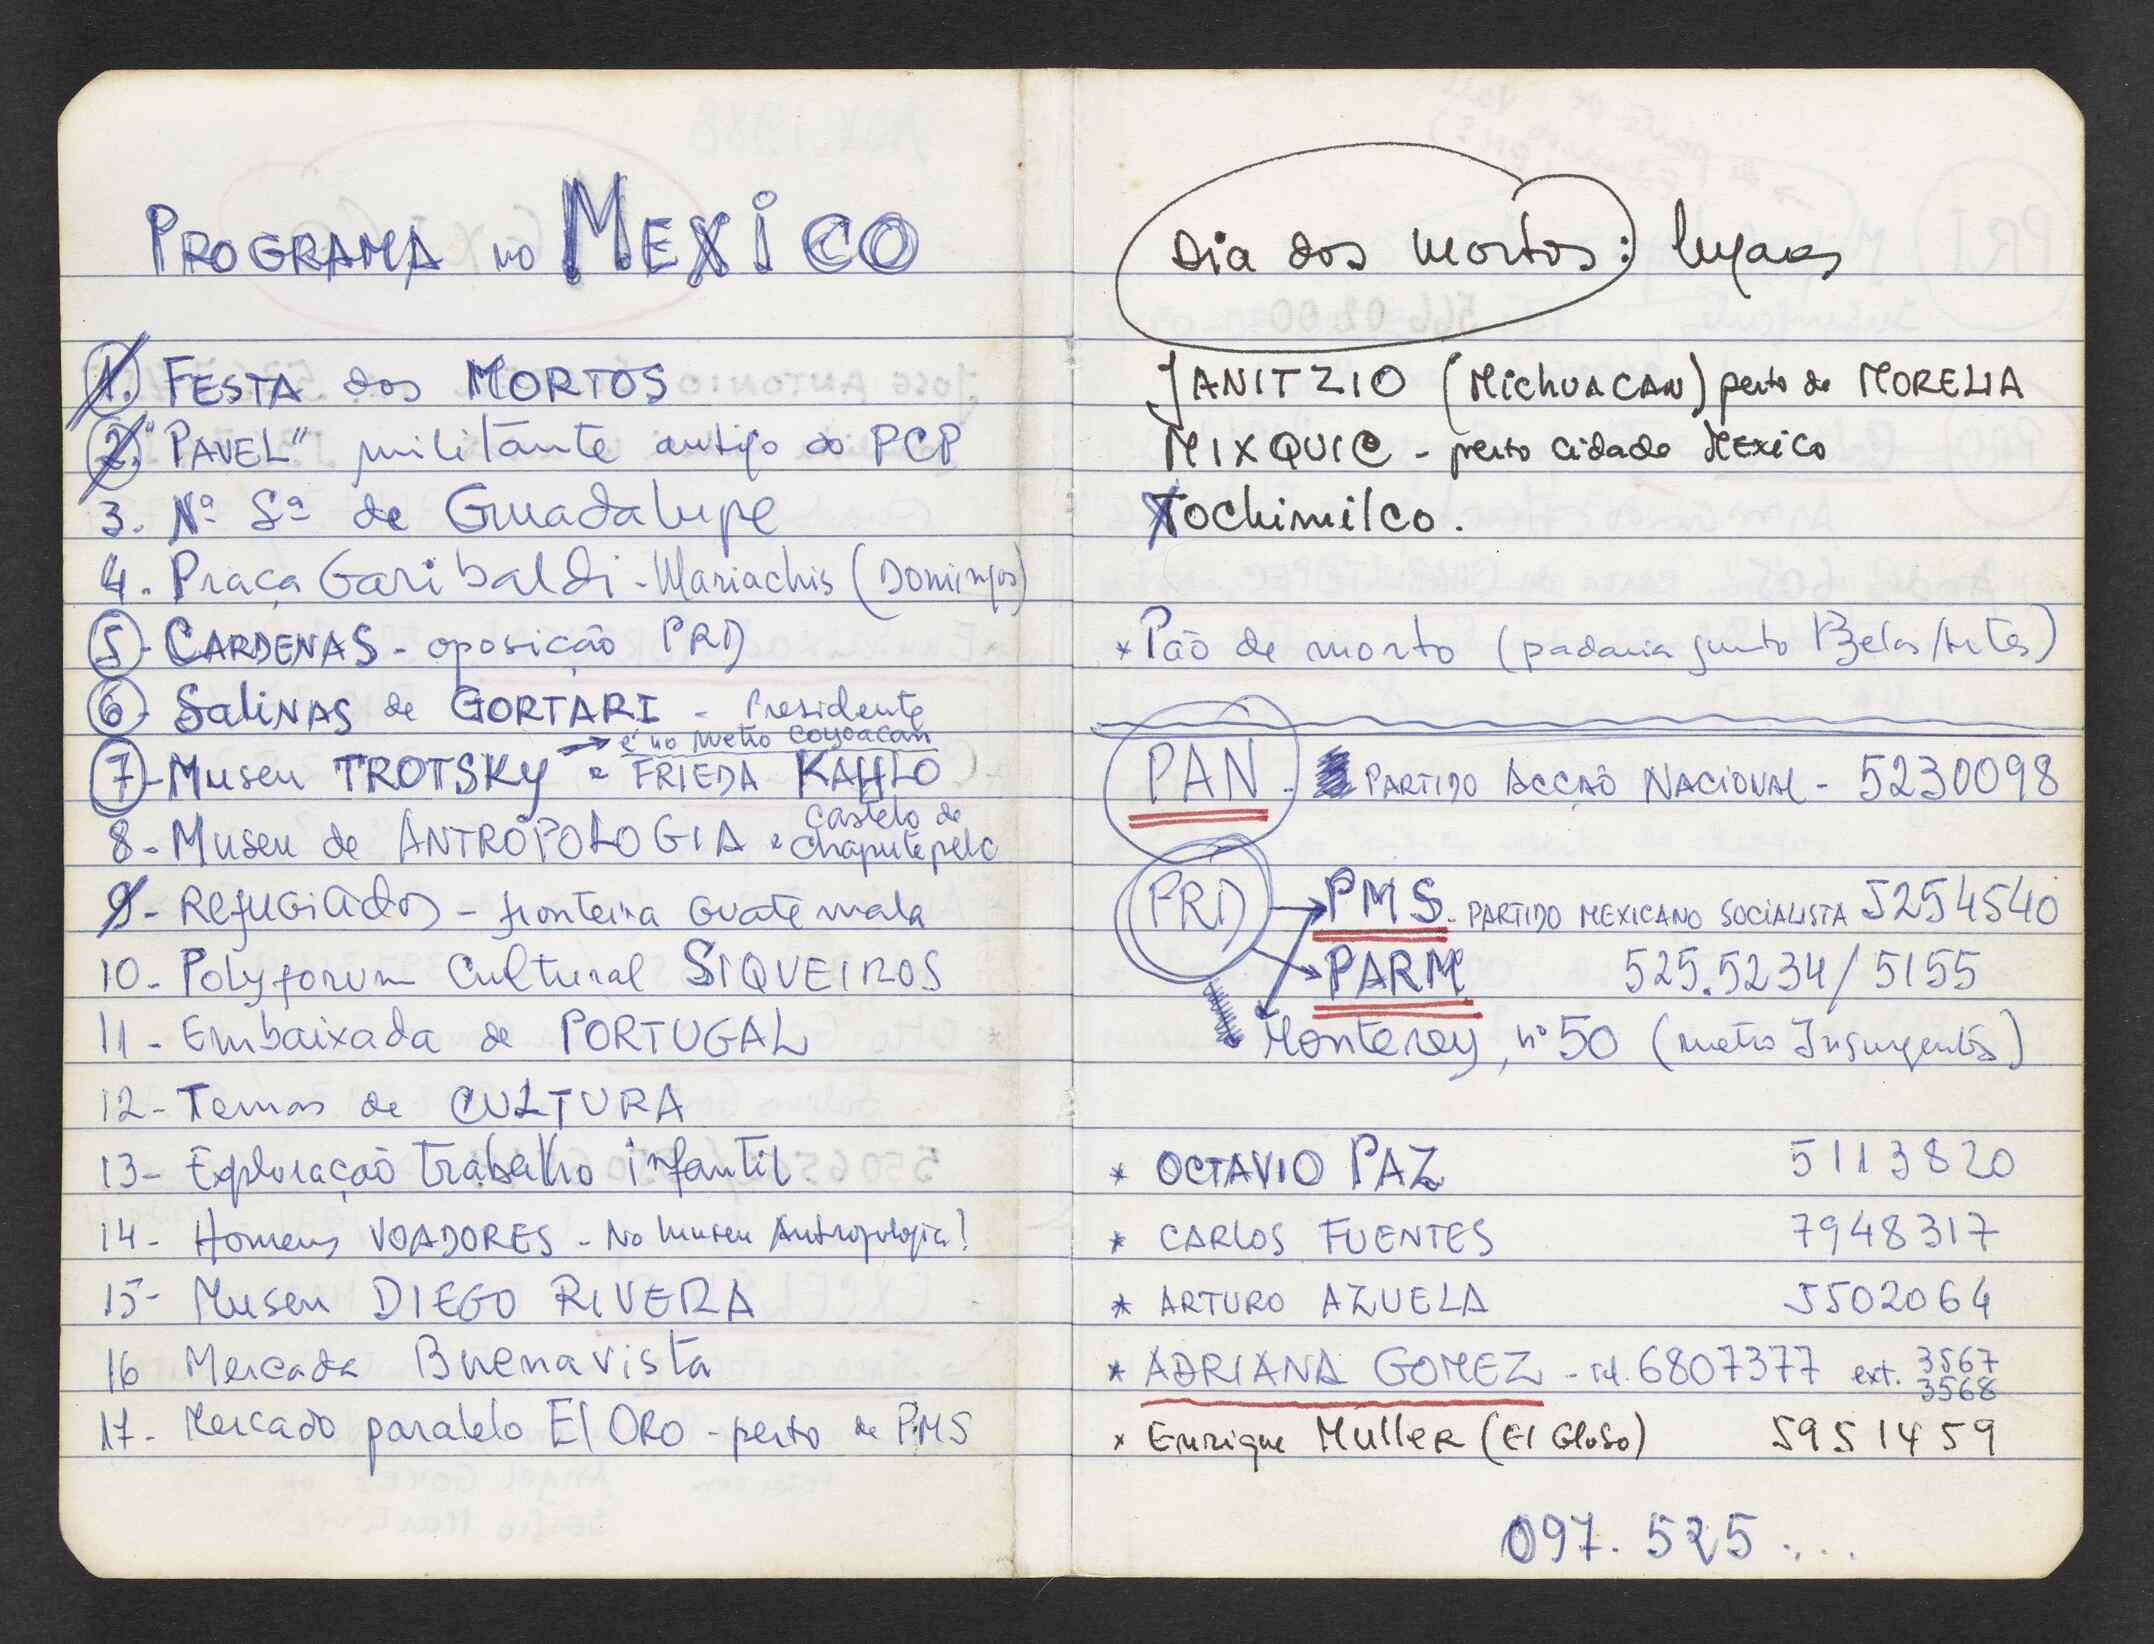 PROGRAMA no MEXICO
1. FESTA dos MORTOS
2. "PAVEL" militante antigo do PCP
3. Nª Sª de Guadalupe
4. Praça Garibaldi - Mariachis (Domingos)
5 - CARDENAS - oposição PRD
6 - SaliNAS de GORTARI - Presidente
é no metro Coyoacan
7 - Museu TROTSKY e FRIEDA KAHLO
8 - Museu de ANTROPOLOGIA e Castelo de Chapultepelc
9 - REFUGIADOS - fronteira Guatemala
10 - Polyforum Cultural SIQVEIROS
11 - Embaixada de PORTUGAL
12 - Temas de CULTURA
13 - Exploração trabalho infantil
14 - Homens VOADORES - No Museu Antropologia!
15 - Museu DIEGO RIVERA
16 Mercado Buenavista
17 - Mercado paralelo El ORO - perto de PMS
Dia dos mortos: lugares
JANITZIO (MichUACAN) perto de MORELIA
MIXQUIC - perto cidade MExico
Xochimilco.
* Pão de morto (padaria junto Belas Artes)
PAN - PARTIDO ACCÃO NACIONAL - 5230098
PRD PMS - PARTIDO MEXICANO SOCIALISTA 5254540
PARM 525.5234/5155
Monterey, nº 50 (metro Insurgentes)
* OCTAVIO PAZ 5113820
* CARLOS FUENTES 7948317
* ARTURO AZUELA 5502064
* ADRIANA GOMEZ - tel. 6807377 ext. 3567 3568
* Enrique Muller (El Globo) 5951459
097. 525 ....